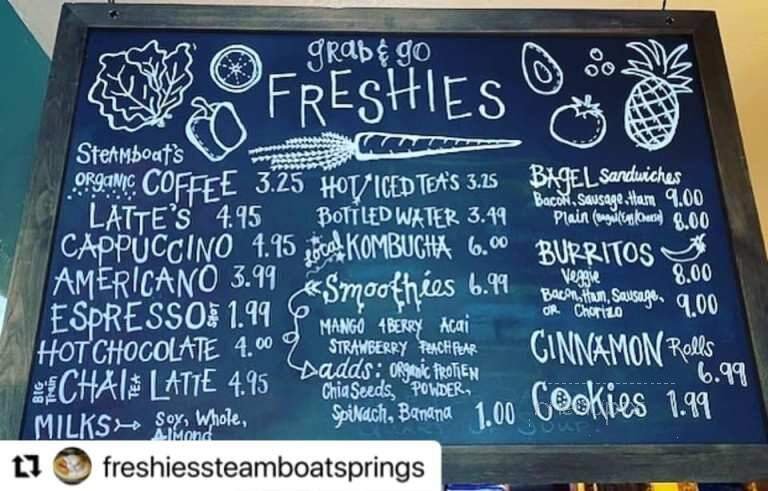 grab & go
FRESHIES
Steamboat's
ORGANIC COFFEE 3.25
LATTE'S 4.95
CAPPUCCINO 4.95
AMERICANO 3.99
ESPRESSO SHOT 1.99
HOT CHOCOLATE 4.00
BIG Train CHAI TEA LATTE 4.95
MILKS Soy, Whole,
Almond
HOT/ICED TEA'S 3.25
BOTTLED WATER 3.49
local KOMBUCHA 6.00
Smoothies 6.99
MANGO 4BERRY Acai
STRAWBERRY PEACHPEAR
adds: ORganic PROTIEN
Chia Seeds, POWDER,
SpiNach, Banana 1.00
BAGEL Sandwiches
Bacon, Sausage, Ham 9.00
Plain (Bagel/Egg/Cheese) 8.00
BURRITOS
Veggie 8.00
Bacon, Ham, Sausage,
OR Chorizo 9.00
CINNAMON Rolls
6.99
Cookies 1.99
freshiessteamboatsprings